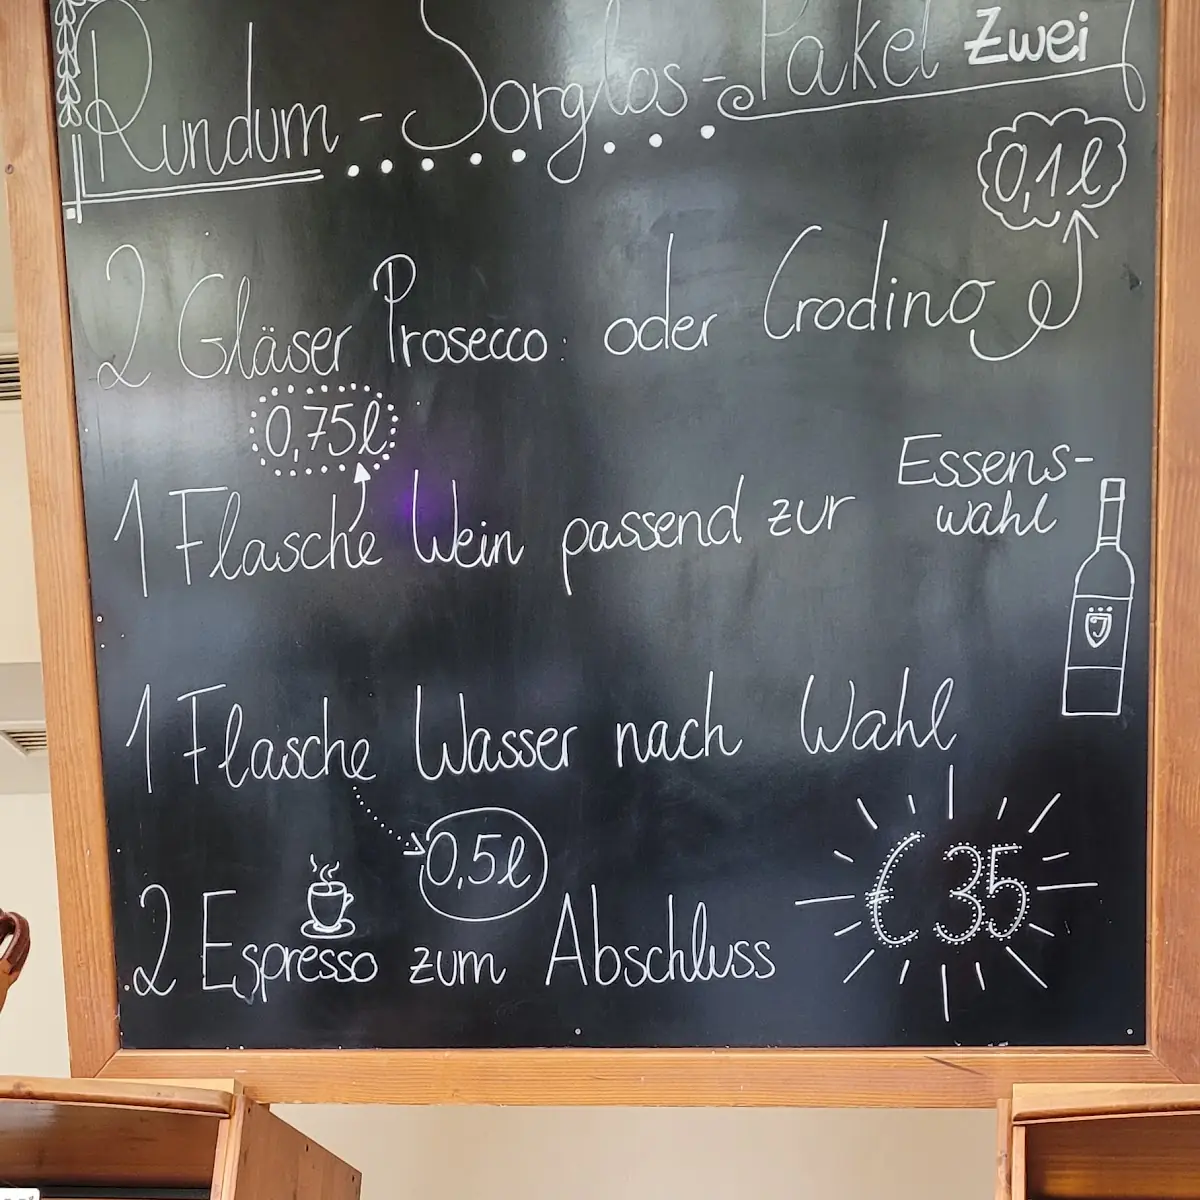 Rundum-Sorglos-Paket Zwei
0,1l
2 Gläser Prosecco oder Crodino
0,75l
1 Flasche Wein passend zur Essens-
wahl
1 Flasche Wasser nach Wahl
0,5l
€ 35
2 Espresso zum Abschluss